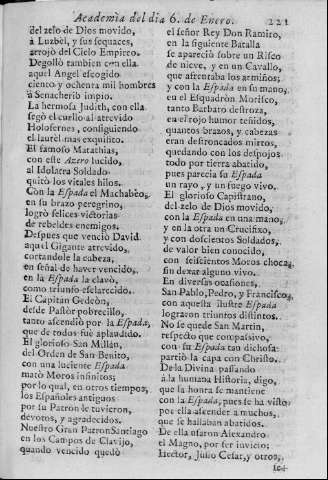 Academia del dia 6. de Enero. 221
del zelo de Dios movido,
à Luzbèl, y sus sequaces,
arrojò del Cielo Empireo.
Degollò tambien con ella
aquel Angel escogido
ciento y ochenta mil hombres
à Senacherib impio.
La hermosa Judith, con ella
segò el cuello al atrevido
Holofernes, consiguiendo
el laurèl mas exquisito.
El famoso Matathias,
con este Azero lucido,
al Idolatra Soldado
quitò los vitales hilos.
Con la Espada el Machabèo,
en su brazo peregrino,
logrò felices victorias
de rebeldes enemigos.
Despues que venciò David
aquel Gigante atrevido,
cortandole la cabeza,
en señal de haver vencido,
en la Espada la clavò,
como triunfo esclarecido.
El Capitan Gedeòn,
desde Pastòr pobrecillo,
tanto ascendiò por la Espada,
que de todos fuè aplaudido.
El glorioso San Millàn,
del Orden de San Benito,
con una luciente Espada
matò Moros infinitos;
por lo qual, en otros tiempos,
los Españoles antiguos
por su Patron le tuvieron,
devotos, y agradecidos.
Nuestro Gran Patron Santiago
en los Campos de Clavijo,
quando vencido quedò
el señor Rey Don Ramiro,
en la siguiente Batalla
se apareciò sobre un Risco
de nieve, y en un Cavallo,
que afrentaba los armiños;
y con la Espada en su mano,
en el Esquadròn Morisco,
tanto Barbaro destroza,
en el rojo humor teñidos,
quantos brazos, y cabezas
eran destroncados mirtos,
quedando con los despojos
todo por tierra abatido,
pues parecia su Espada
un rayo, y un fuego vivo.
El glorioso Capistrano,
del zelo de Dios movido,
con la Espada en una mano,
y en la otra un Crucifixo,
y con doscientos Soldados,
de valor bien conocido,
con seiscientos Moros choca,
sin dexar alguno vivo.
En diversas ocasiones,
San Pablo, Pedro, y Francisco,
con aquesta ilustre Espada
lograron triunfos distintos.
No se quede San Martin,
respecto que compassivo,
con su Espada tan dichosa
partiò la capa con Christo.
De la Divina passando
à la humana Historia, digo,
que la honra se mantiene
con la Espada, pues se ha visto
por ella ascender à muchos,
que se hallaban abatidos.
De ella usaron Alexandro
el Magno, por ser invicto;
Hector, Julio Cesar, y otros,